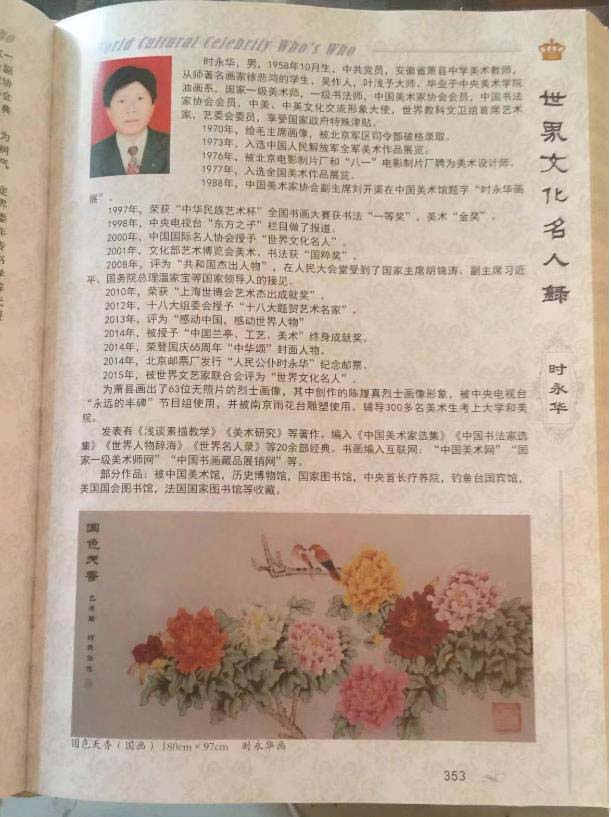 World Cultural Celebrity Who's Who
时永华，男，1958年10月生，中共党员，安徽省萧县中学美术教师，
从师著名画家徐悲鸿的学生、吴作人、叶浅予大师。毕业于中央美术学院
油画系，国家一级美术师，一级书法师，中国美术家协会会员，中国书法
家协会会员，中美、中英文化交流形象大使，世界教科文卫组首席艺术
家，艺委会委员，享受国家政府特殊津贴。
1970年，给毛主席画像，被北京军区司令部破格录取。
1973年，入选中国人民解放军全军美术作品展览。
1976年，被北京电影制片厂和“八一”电影制片厂聘为美术设计师。
1977年，入选全国美术作品展览。
1988年，中国美术家协会副主席刘开渠在中国美术馆题字“时永华画
展”。
1997年，荣获“中华民族艺术杯”全国书画大赛获书法“一等奖”，美术“金奖”。
1998年，中央电视台“东方之子”栏目做了报道。
2000年，中国国际名人协会授予“世界文化名人”。
2001年，文化部艺术博览会美术，书法获“国粹奖”。
2008年，评为“共和国杰出人物”，在人民大会堂受到了国家主席胡锦涛、副主席习近
平、国务院总理温家宝等国家领导人的接见。
2010年，荣获“上海世博会艺术杰出成就奖”。
2012年，十八大组委会授予“十八大题贺艺术名家”。
2013年，评为“感动中国，感动世界人物”
2014年，被授予“中国兰亭、工艺、美术”终身成就奖。
2014年，荣登国庆65周年“中华颂”封面人物。
2014年，北京邮票厂发行“人民公仆时永华”纪念邮票、
2015年，被世界文艺家联合会评为“世界文化名人”。
为萧县画出了63位无照片的烈士画像，其中创作的陈履真烈士画像形象，被中央电视台
“永远的丰碑”节目组使用，并被南京雨花台雕塑使用。辅导300多名美术生考上大学和美
院。
发表有《浅谈素描教学》《美术研究》等著作。编入《中国美术家选集》《中国书法家选
集》《世界人物辞海》《世界名人录》等20余部经典。书画编入互联网：“中国美术网”“国
家一级美术师网”“中国书画藏品展销网”等。
部分作品：被中国美术馆，历史博物馆，国家图书馆，中央首长疗养院，钓鱼台国宾馆，
美国国会图书馆，法国国家图书馆等收藏。
世界文化名人录
时永华
国色天香
国色天香（国画）180cm×97cm 时永华画
353